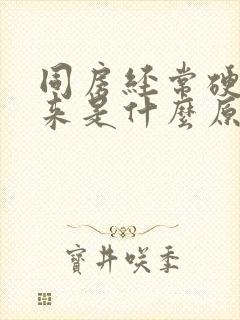 同房经常硬
来是什麼原
寶井咲季